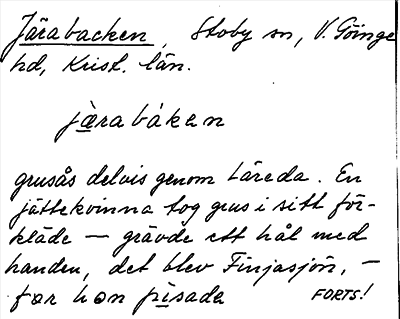 Järabacken, Stoby sn, V. Göinge
hd, Krist. län.
jæ̀rabákan
grusås delvis genom Läreda. En
jättekvinna tog grus i sitt för-
kläde — grävde ett hål med
handen, det blev Finjasjön, —
før hon pìsada FORTS!